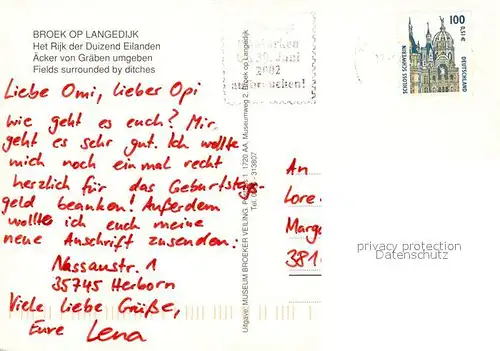 BROEK OP LANGEDIJK
Het Rijk der Duizend Eilanden
Äcker von Gräben umgeben
Fields surrounded by ditches
Liebe Omi, lieber Opi
wie geht es euch? Mir
geht es sehr gut. Ich wollte
mich noch einmal recht
herzlich für das Geburtstags-
geld beanken! Außerdem
wollte ich euch meine
neue Anschrift zusenden:
Nassaustr. 1
35745 Herborn
Viele liebe Grüße,
Eure Lena
Uitgave: MUSEUM BROEKER VEILING, 1720 AA, Museumweg 2, Broek op Langedijk
Tel. - 313807
30. Juni
2002
100
0,51€
DEUTSCHLAND
SCHLOSS SCHWERIN
An
Lore
Marg
381
privacy protection
Datenschutz